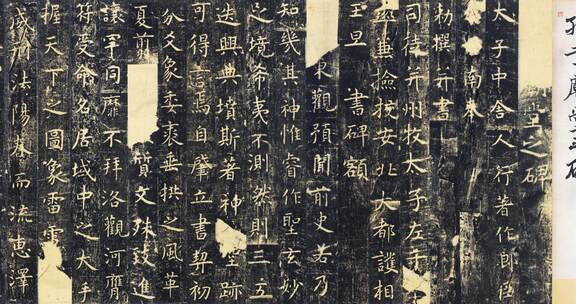 孔子廟堂碑
堂之碑
太子中舍人行著作郎臣
南奉
勅撰并書
司徒并州牧太子左千
率兼檢校安北大都護相
王旦書碑額
東觀預聞前史若乃
知幾其神惟睿作聖玄妙
之境希夷不測然則三五
迭興典墳斯著神聖跡
可得言焉自肇立書契初
分爻象委裘垂拱之風革
夏翦質文殊致進
讓罕同靡不拜洛觀河膺
符受命名居域中之大手
握天下之圖象雷電
威刑法陽春而流惠澤